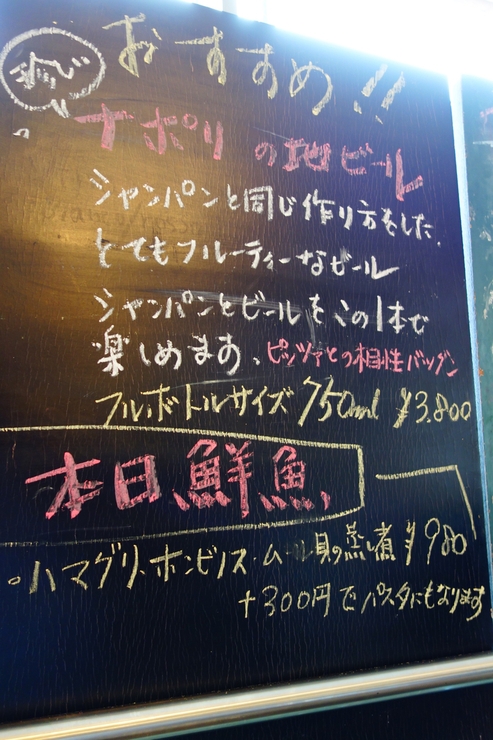 おすすめ!!
ナポリの地ビール
シャンパンと同じ作り方をした、
とてもフルーティーなビール
シャンパンとビールをこの1本で
楽しめます。ピッツァとの相性バツグン
フルボトルサイズ 750ml ¥3.800
本日鮮魚
・ハマグリ・ホンビノス・ムール貝の蒸し煮 ¥980
+300円でパスタにもなります